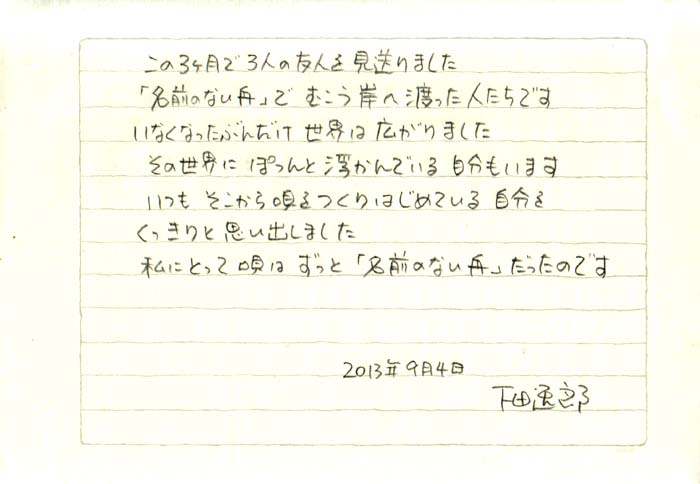 この3ヶ月で3人の友人を見送りました
「名前のない舟」で むこう岸へ渡った人たちです
いなくなったぶんだけ 世界は広がりました
その世界に ぽつんと浮かんでいる自分もいます
いつも そこから唄をつくりはじめている自分を
くっきりと思い出しました
私にとって唄は ずっと「名前のない舟」だったのです
2013年9月4日
下田逸郎